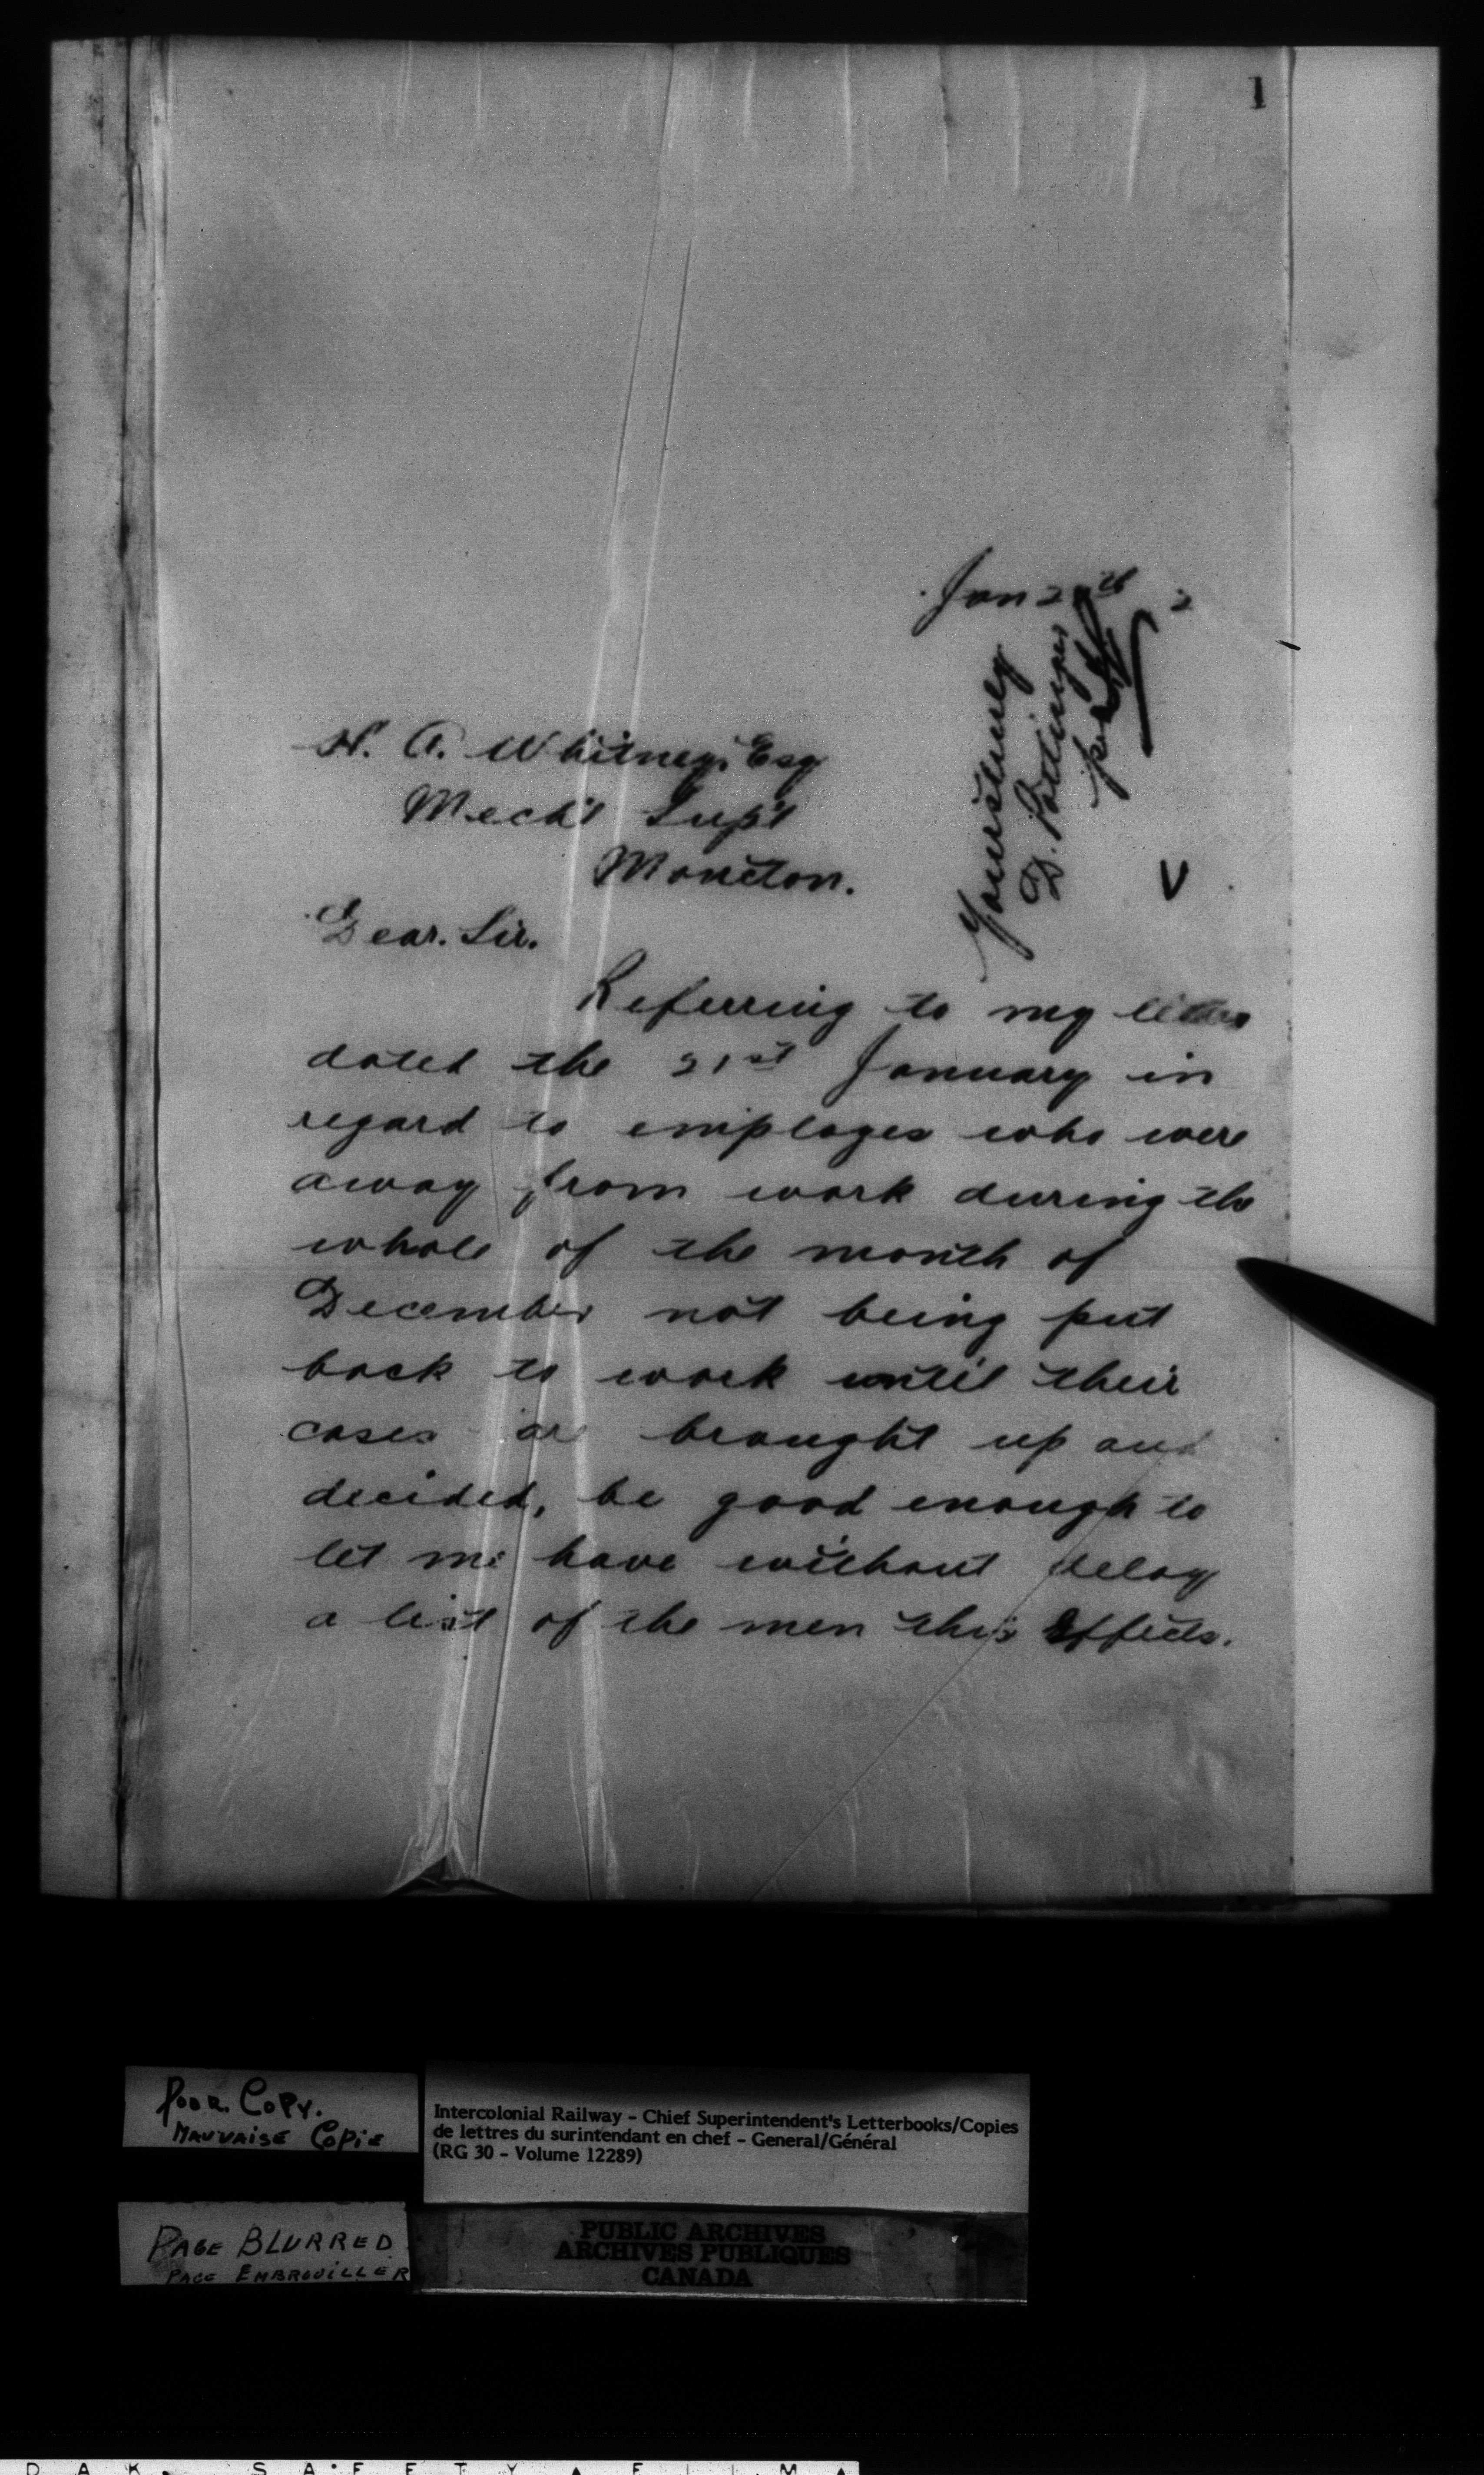 1
Jan 2
H. A. Whitney, Esq
Mech'l Sup't
Moncton.
Yours truly
D. Pottinger
per
V
Dear. Sir.
Referring to my letter
dated the 21st January in
regard to employes who were
away from work during the
whole of the month of
December not being put
back to work until their
cases are brought up and
decided, be good enough to
let me have without delay
a list of the men this effects.
Poor Copy.
Mauvaise Copie
Intercolonial Railway - Chief Superintendent's Letterbooks/Copies
de lettres du surintendant en chef - General/Général
(RG 30 - Volume 12289)
Page Blurred
Page Embrouiller
PUBLIC ARCHIVES
ARCHIVES PUBLIQUES
CANADA